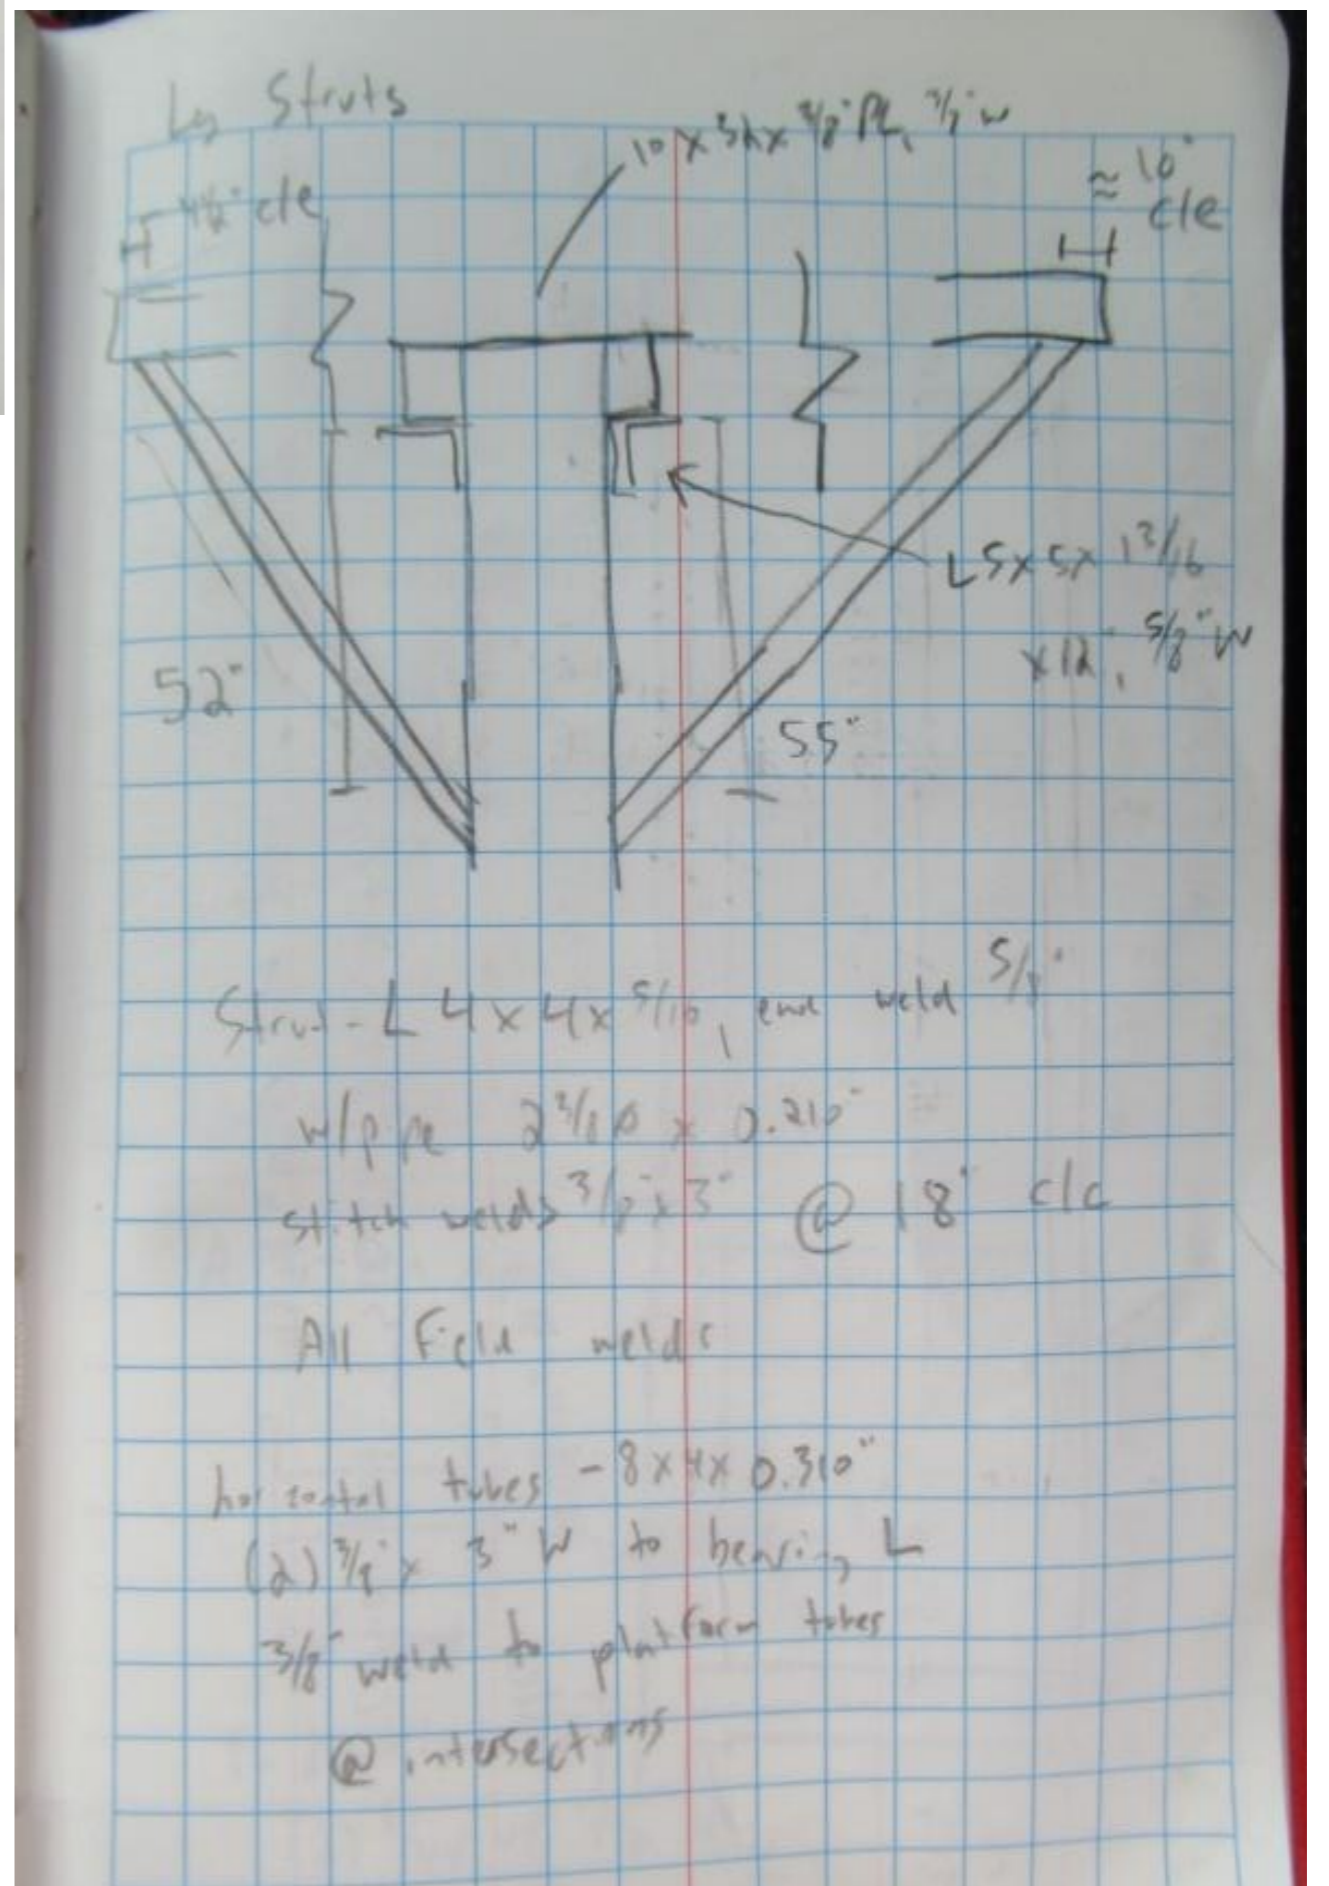 Leg Struts
10 x 32 x 3/8" PL, 3/8" W
≈ 10"
c/e
4½" c/e
L 5x5x 13/16
x12, 5/8" W
52"
55"
Strut - L 4x4x 5/16, end weld 5/8"
w/pipe 2 3/8 Ø x 0.210"
stitch welds 3/8" x 3" @ 18" c/c
All Field welds
horizontal tubes - 8x4x 0.310"
(2) 3/8" x 3" W to bearing L
3/8" weld to platform tubes
@ intersections